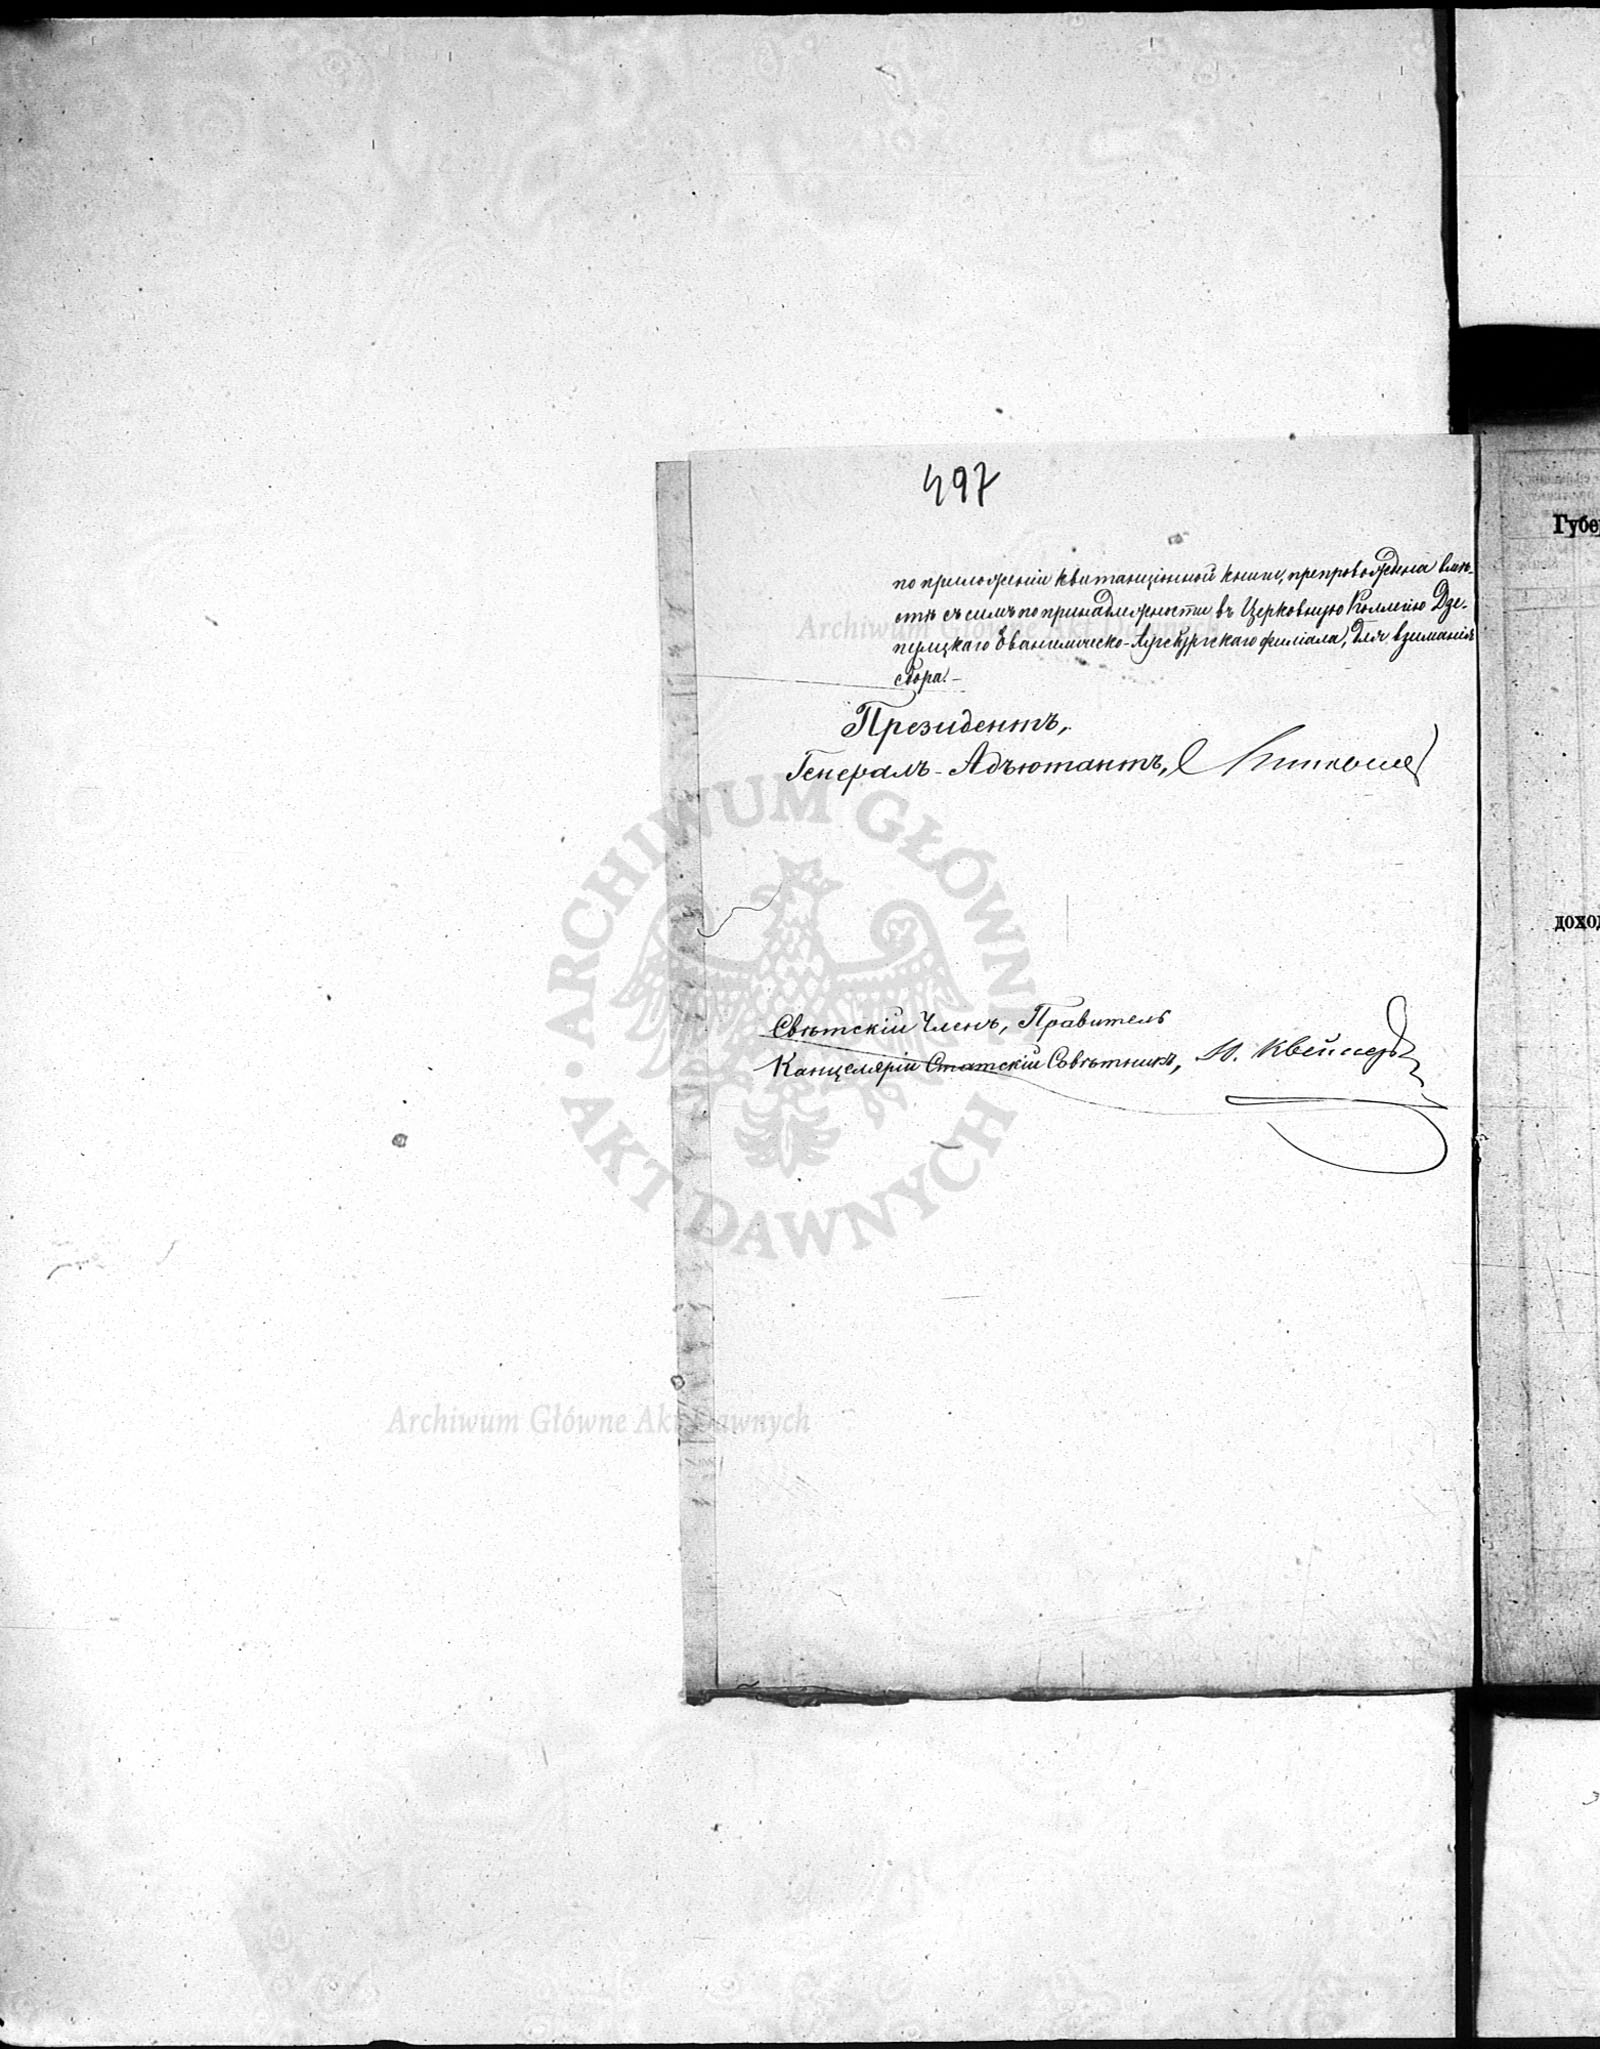 497
по приложеніи квитанціонной книги, препровождена вмѣ-
стѣ съ симъ по принадлежности въ Церковную Коллегію Дзе-
пулцкаго Евангелическо-Аугсбургскаго филіала, для взиманія
сбора.-
Президентъ,
Генералъ-Адъютантъ,
Свѣтскій Членъ, Правитель
Канцеляріи Статскій Совѣтникъ, Ю. Квейссеръ
Archiwum Główne Akt Dawnych
ARCHIWUM GŁÓWNE AKT DAWNYCH
Archiwum Główne Akt Dawnych
Губер
доход